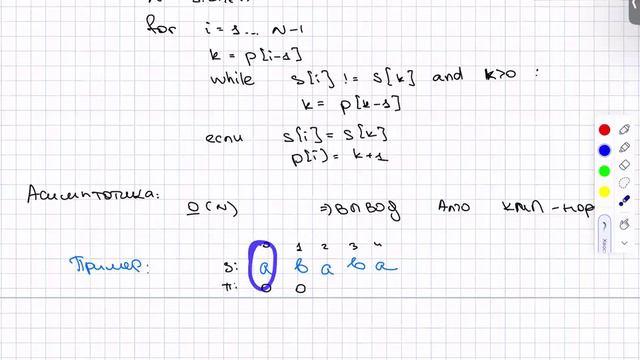 for i = 1 ... N-1
k = p[i-1]
while s[i] != s[k] and k>0 :
k = p[k-1]
если s[i] = s[k]
p[i] = k+1
Асимптотика:
O(N) => вывод Алго КМП - нор
0 1 2 3 4
Пример: s: a b a b a
π: 0 0